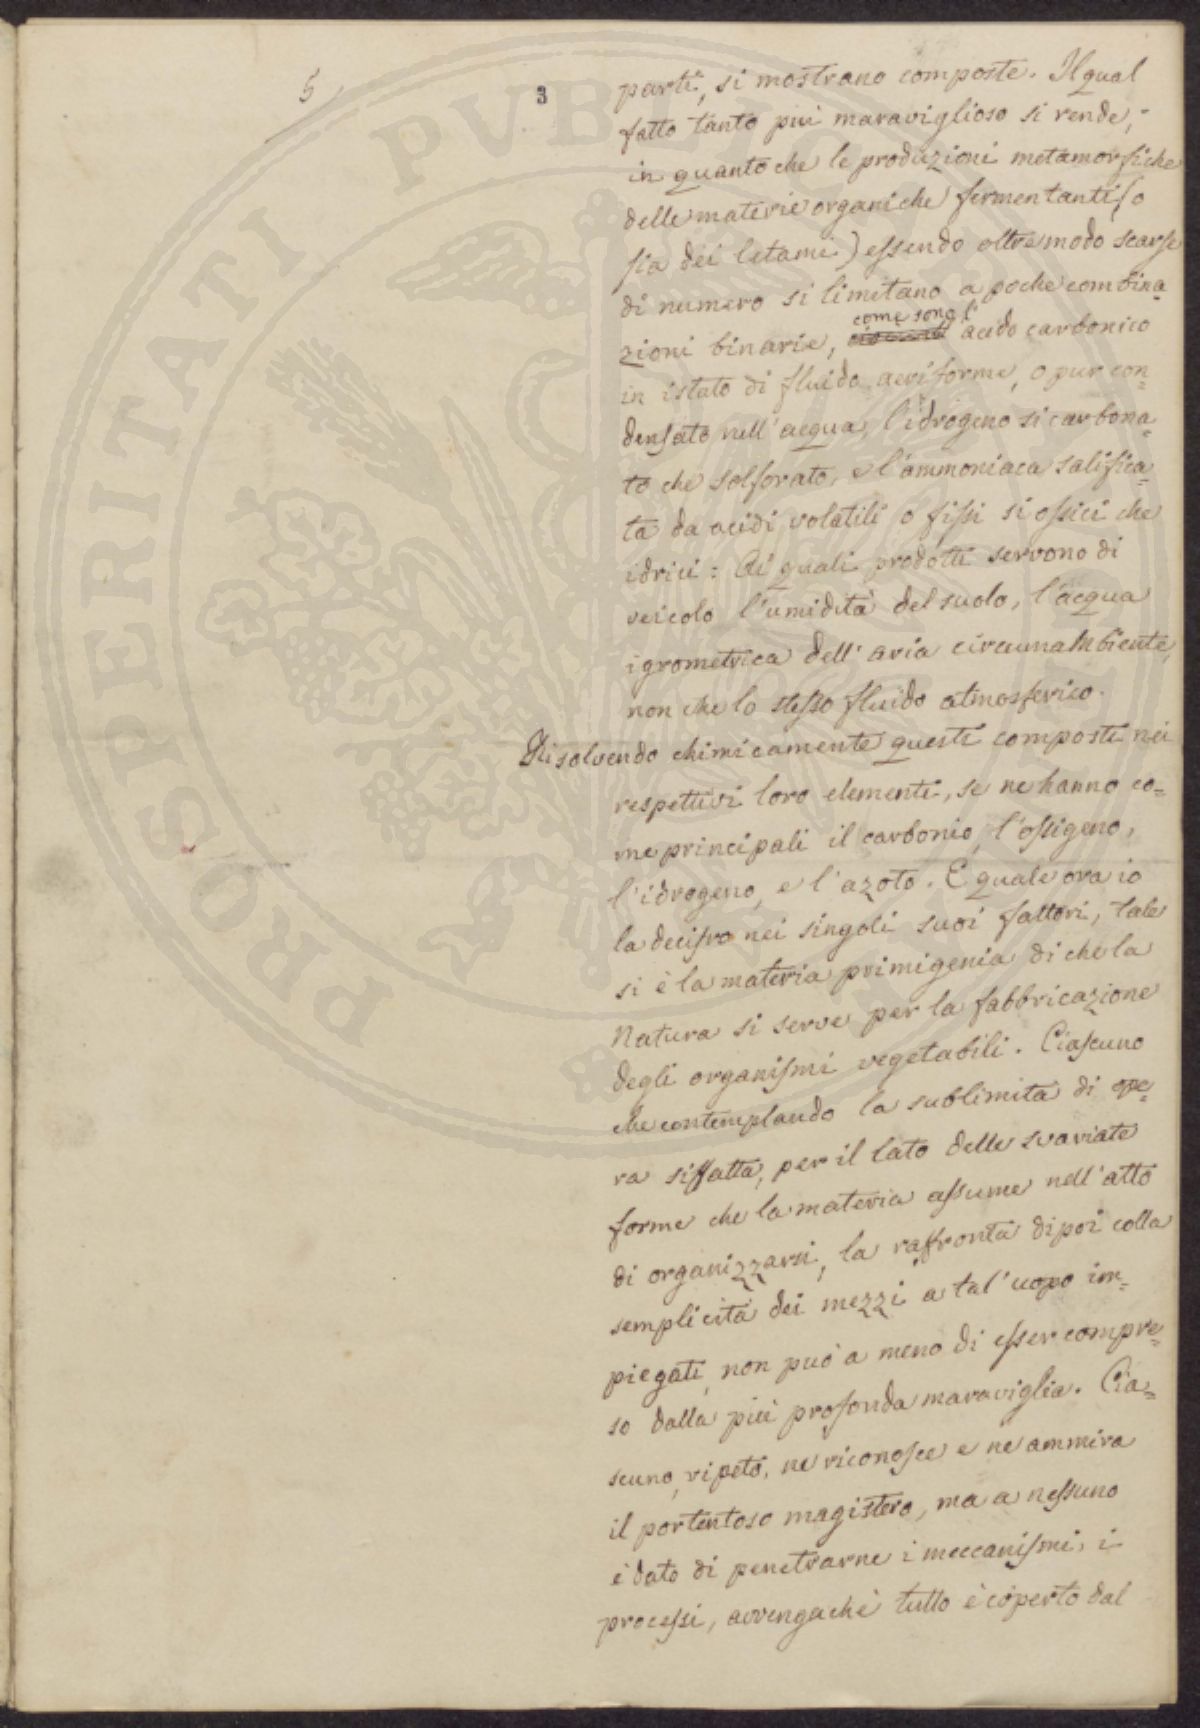 5
3
parti, si mostrano composte. Il qual
fatto tanto più maraviglioso si rende,
in quanto che le produzioni metamorfiche
delle materie organiche fermentanti (o
sia dei letami) essendo oltre modo scarse
di numero si limitano a poche combina=
zioni binarie, come sono l'acido carbonico
in istato di fluido aeriforme, o pur con=
densato nell'acqua, l'idrogeno sì carbona=
to che solforato, e l'ammoniaca salifica=
ta da acidi volatili o fissi sì ossici che
idrici: Ai quali prodotti servono di
veicolo l'umidità del suolo, l'acqua
igrometrica dell'aria circumambiente,
non che lo stesso fluido atmosferico.
Risolvendo chimicamente questi composti nei
respettivi loro elementi, se ne hanno co=
me principali il carbonio, l'ossigeno,
l'idrogeno, e l'azoto. E quale ora io
la decifro nei singoli suoi fattori, tale
si è la materia primigenia di che la
Natura si serve per la fabbricazione
degli organismi vegetabili. Ciascuno
che contemplando la sublimità di ope=
ra siffatta, per il lato delle svariate
forme che la materia assume nell'atto
di organizzarsi, la raffronta dipoi colla
semplicità dei mezzi a tal'uopo im=
piegati, non può a meno di esser compre=
so dalla più profonda maraviglia. Cia=
scuno, ripeto, ne riconosce e ne ammira
il portentoso magistero, ma a nessuno
è dato di penetrarne i meccanismi, i
processi, avvengachè tutto è coperto dal
PROSPERITATI